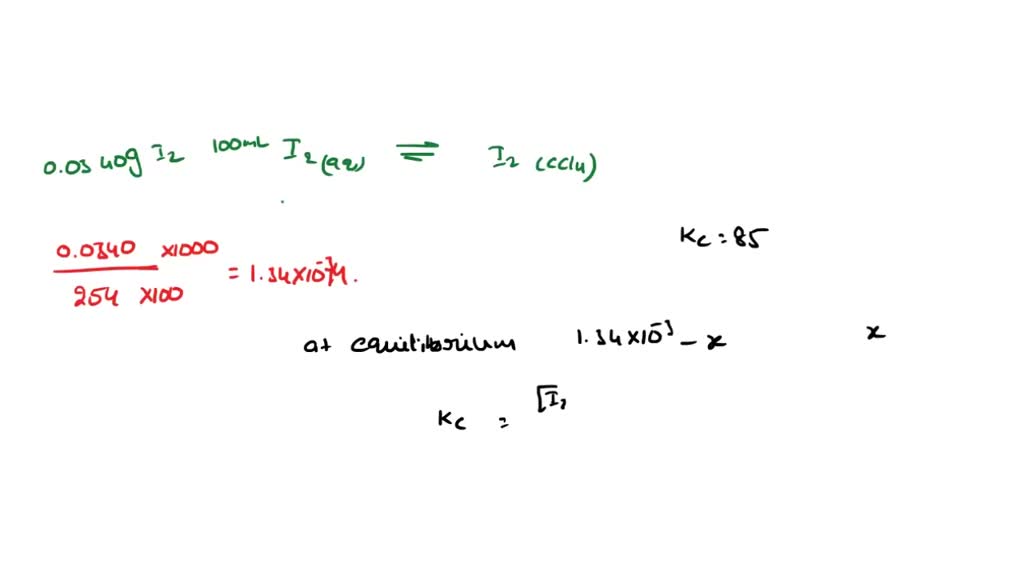 0.0340g I₂ 100mL I₂(aq) ⇌ I₂ (CCl₄)
Kc = 85
0.0340 x1000 / 254 x100 = 1.34x10⁻³M.
at equilibrium 1.34x10⁻³ - x x
Kc = [I₂